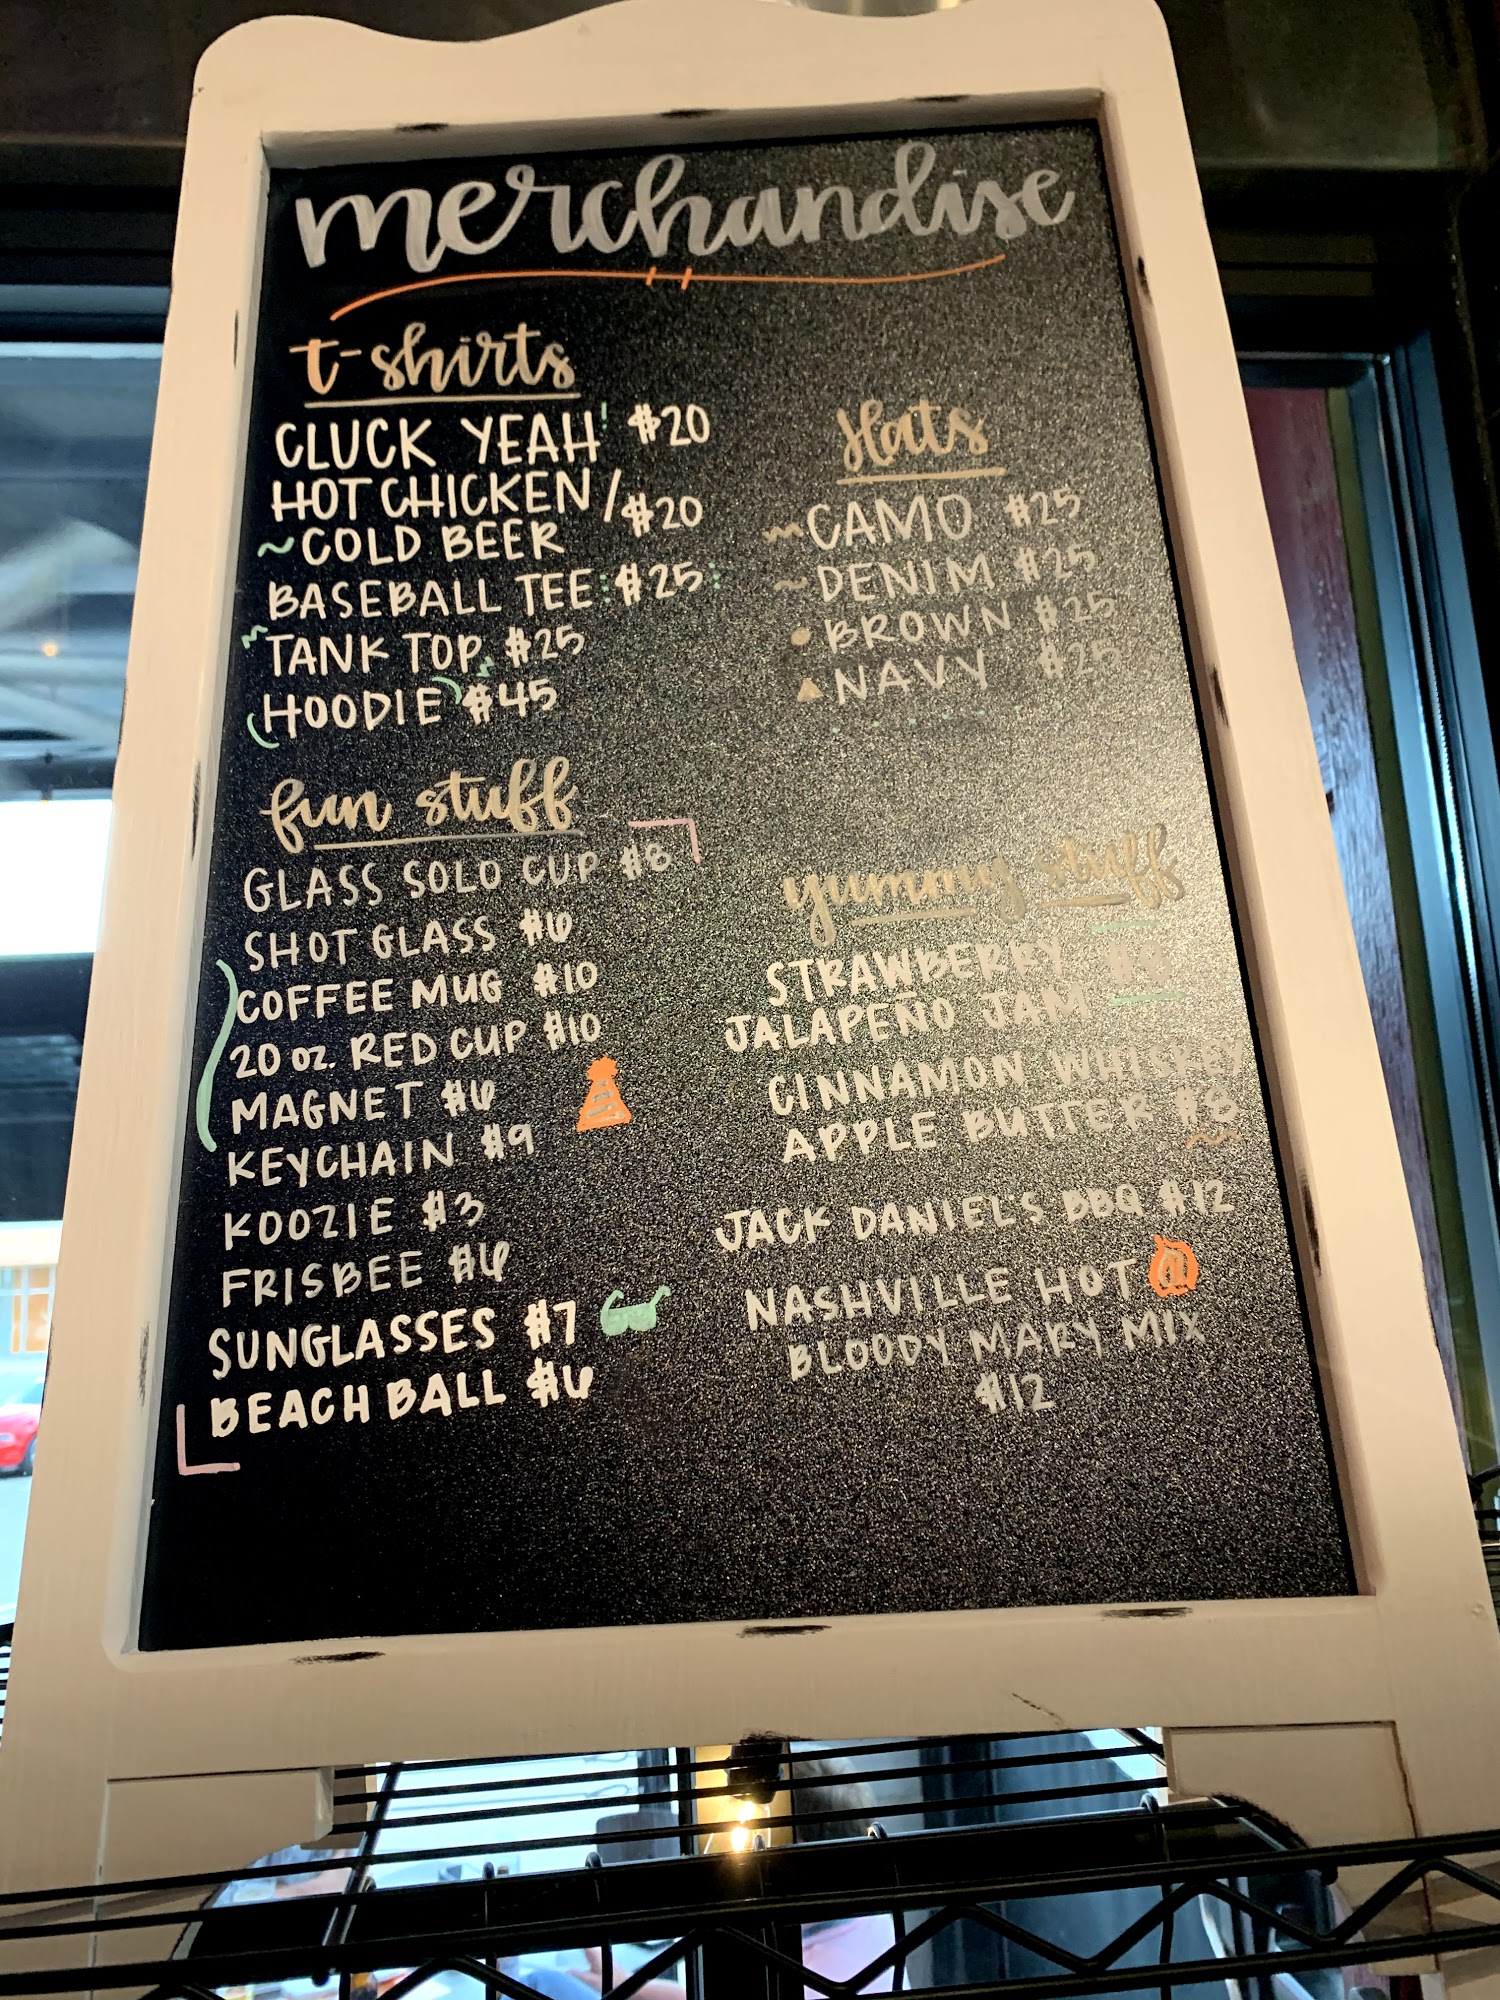 merchandise
t-shirts
CLUCK YEAH! $20
HOT CHICKEN / $20
~COLD BEER
BASEBALL TEE $25
TANK TOP $25
HOODIE $45
Hats
CAMO $25
~DENIM $25
BROWN $25
NAVY $25
fun stuff
GLASS SOLO CUP $8
SHOT GLASS $6
COFFEE MUG $10
20 oz. RED CUP $10
MAGNET $6
KEYCHAIN $9
KOOZIE $3
FRISBEE $6
SUNGLASSES $7
BEACH BALL $6
yummy stuff
STRAWBERRY $8
JALAPEÑO JAM
CINNAMON WHISKEY
APPLE BUTTER $8
JACK DANIELS BBQ $12
NASHVILLE HOT
BLOODY MARY MIX
$12